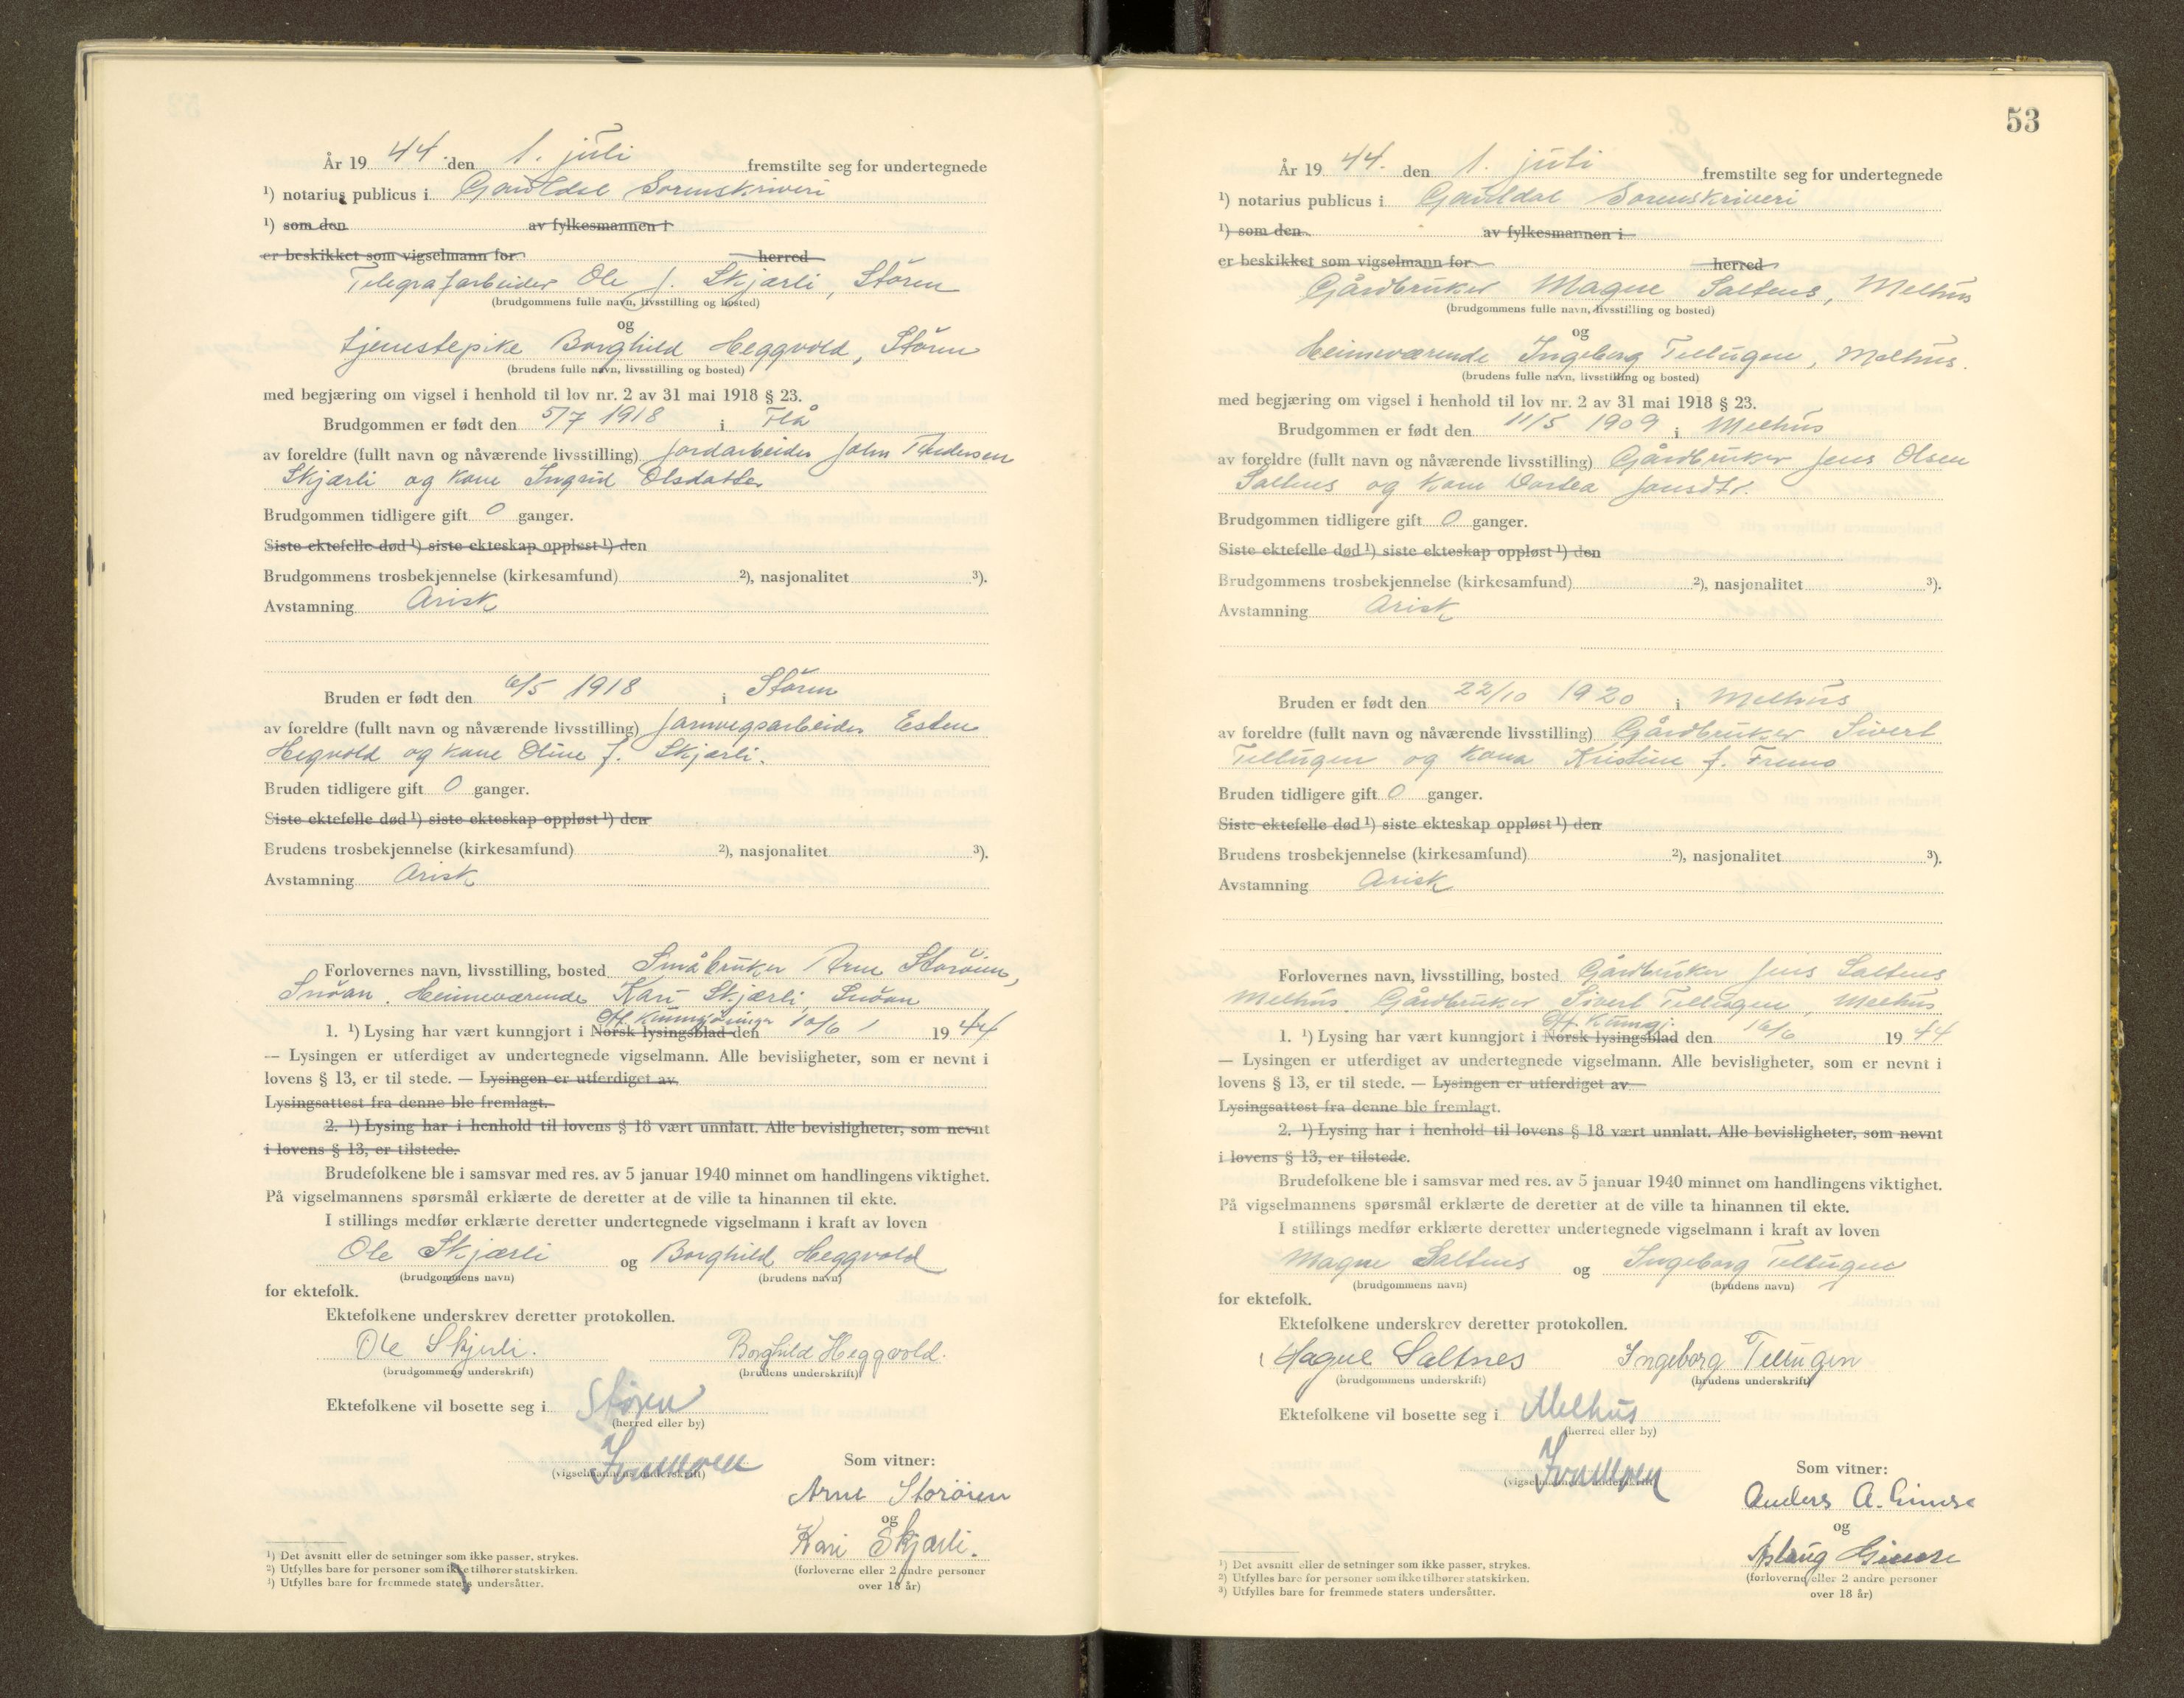 År 19 44 den 1. juli fremstilte seg for undertegnede
¹) notarius publicus i Gauldal Sorenskriveri
¹) som den av fylkesmannen i
er beskikket som vigselmann for herred
Telegrafarbeider Ole J. Skjærli, Støren
(brudgommens fulle navn, livsstilling og bosted)
og
tjenestepike Borghild Heggvold, Støren
(brudens fulle navn, livsstilling og bosted)
med begjæring om vigsel i henhold til lov nr. 2 av 31 mai 1918 § 23.
Brudgommen er født den 5/7 1918 i Flå
av foreldre (fullt navn og nåværende livsstilling) Jordarbeider John
Skjærli og kone Ingrid Olsdatter
Brudgommen tidligere gift 0 ganger.
Siste ektefelle død ¹) siste ekteskap oppløst ¹) den
Brudgommens trosbekjennelse (kirkesamfund) ²), nasjonalitet ³).
Avstamning Arisk
Bruden er født den 6/5 1918 i Støren
av foreldre (fullt navn og nåværende livsstilling) Jernvegsarbeider Esten
Hegvold og kone Oline f. Skjærli.
Bruden tidligere gift 0 ganger.
Siste ektefelle død ¹) siste ekteskap oppløst ¹) den
Brudens trosbekjennelse (kirkesamfund) ²), nasjonalitet ³).
Avstamning Arisk
Forlovernes navn, livsstilling, bosted Småbruker Arne Storøien,
Snöan. Heimeværende Kari Skjærli, Snöan
Off. Kunngjøringer
1. ¹) Lysing har vært kunngjort i Norsk lysingsblad den 10/6 1944
— Lysingen er utferdiget av undertegnede vigselmann. Alle bevisligheter, som er nevnt i
lovens § 13, er til stede. — Lysingen er utferdiget av
Lysingsattest fra denne ble fremlagt.
2. ¹) Lysing har i henhold til lovens § 18 vært unnlatt. Alle bevisligheter, som nevnt
i lovens § 13, er tilstede.
Brudefolkene ble i samsvar med res. av 5 januar 1940 minnet om handlingens viktighet.
På vigselmannens spørsmål erklærte de deretter at de ville ta hinannen til ekte.
I stillings medfør erklærte deretter undertegnede vigselmann i kraft av loven
Ole Skjærli og Borghild Heggvold
(brudgommens navn) (brudens navn)
for ektefolk.
Ektefolkene underskrev deretter protokollen.
Ole Skjærli. Borghild Heggvold.
(brudgommens underskrift) (brudens underskrift)
Ektefolkene vil bosette seg i Støren
(herred eller by)
(vigselmannens underskrift)
Som vitner:
Arne Storøien
og
Kari Skjærli.
(forloverne eller 2 andre personer
over 18 år)
¹) Det avsnitt eller de setninger som ikke passer, strykes.
²) Utfylles bare for personer som ikke tilhører statskirken.
³) Utfylles bare for fremmede staters undersåtter.
53
År 19 44. den 1. juli fremstilte seg for undertegnede
¹) notarius publicus i Gauldal Sorenskriveri
¹) som den av fylkesmannen i
er beskikket som vigselmann for herred
Gårdbruker Magne Saltnes, Melhus
(brudgommens fulle navn, livsstilling og bosted)
og
Heimeværende Ingeborg Tellugen, Melhus.
(brudens fulle navn, livsstilling og bosted)
med begjæring om vigsel i henhold til lov nr. 2 av 31 mai 1918 § 23.
Brudgommen er født den 11/5 1909 i Melhus
av foreldre (fullt navn og nåværende livsstilling) Gårdbruker Jens Olsen
Saltnes og kone Dortea Jonsdtr.
Brudgommen tidligere gift 0 ganger.
Siste ektefelle død ¹) siste ekteskap oppløst ¹) den
Brudgommens trosbekjennelse (kirkesamfund) ²), nasjonalitet ³).
Avstamning Arisk
Bruden er født den 22/10 1920 i Melhus
av foreldre (fullt navn og nåværende livsstilling) Gårdbruker Sivert
Tellugen og kona Kristine f. Fremo
Bruden tidligere gift 0 ganger.
Siste ektefelle død ¹) siste ekteskap oppløst ¹) den
Brudens trosbekjennelse (kirkesamfund) ²), nasjonalitet ³).
Avstamning Arisk
Forlovernes navn, livsstilling, bosted Gårdbruker Jens Saltnes
Melhus. Gårdbruker Sivert Tellugen, Melhus
Off. Kunngj.
1. ¹) Lysing har vært kunngjort i Norsk lysingsblad den 16/6 1944
— Lysingen er utferdiget av undertegnede vigselmann. Alle bevisligheter, som er nevnt i
lovens § 13, er til stede. — Lysingen er utferdiget av
Lysingsattest fra denne ble fremlagt.
2. ¹) Lysing har i henhold til lovens § 18 vært unnlatt. Alle bevisligheter, som nevnt
i lovens § 13, er tilstede.
Brudefolkene ble i samsvar med res. av 5 januar 1940 minnet om handlingens viktighet.
På vigselmannens spørsmål erklærte de deretter at de ville ta hinannen til ekte.
I stillings medfør erklærte deretter undertegnede vigselmann i kraft av loven
Magne Saltnes og Ingeborg Tellugen
(brudgommens navn) (brudens navn)
for ektefolk.
Ektefolkene underskrev deretter protokollen.
Magne Saltnes Ingeborg Tellugen
(brudgommens underskrift) (brudens underskrift)
Ektefolkene vil bosette seg i Melhus
(herred eller by)
(vigselmannens underskrift)
Som vitner:
Anders A. Gimse
og
Aslaug Gimse
(forloverne eller 2 andre personer
over 18 år)
¹) Det avsnitt eller de setninger som ikke passer, strykes.
²) Utfylles bare for personer som ikke tilhører statskirken.
³) Utfylles bare for fremmede staters undersåtter.